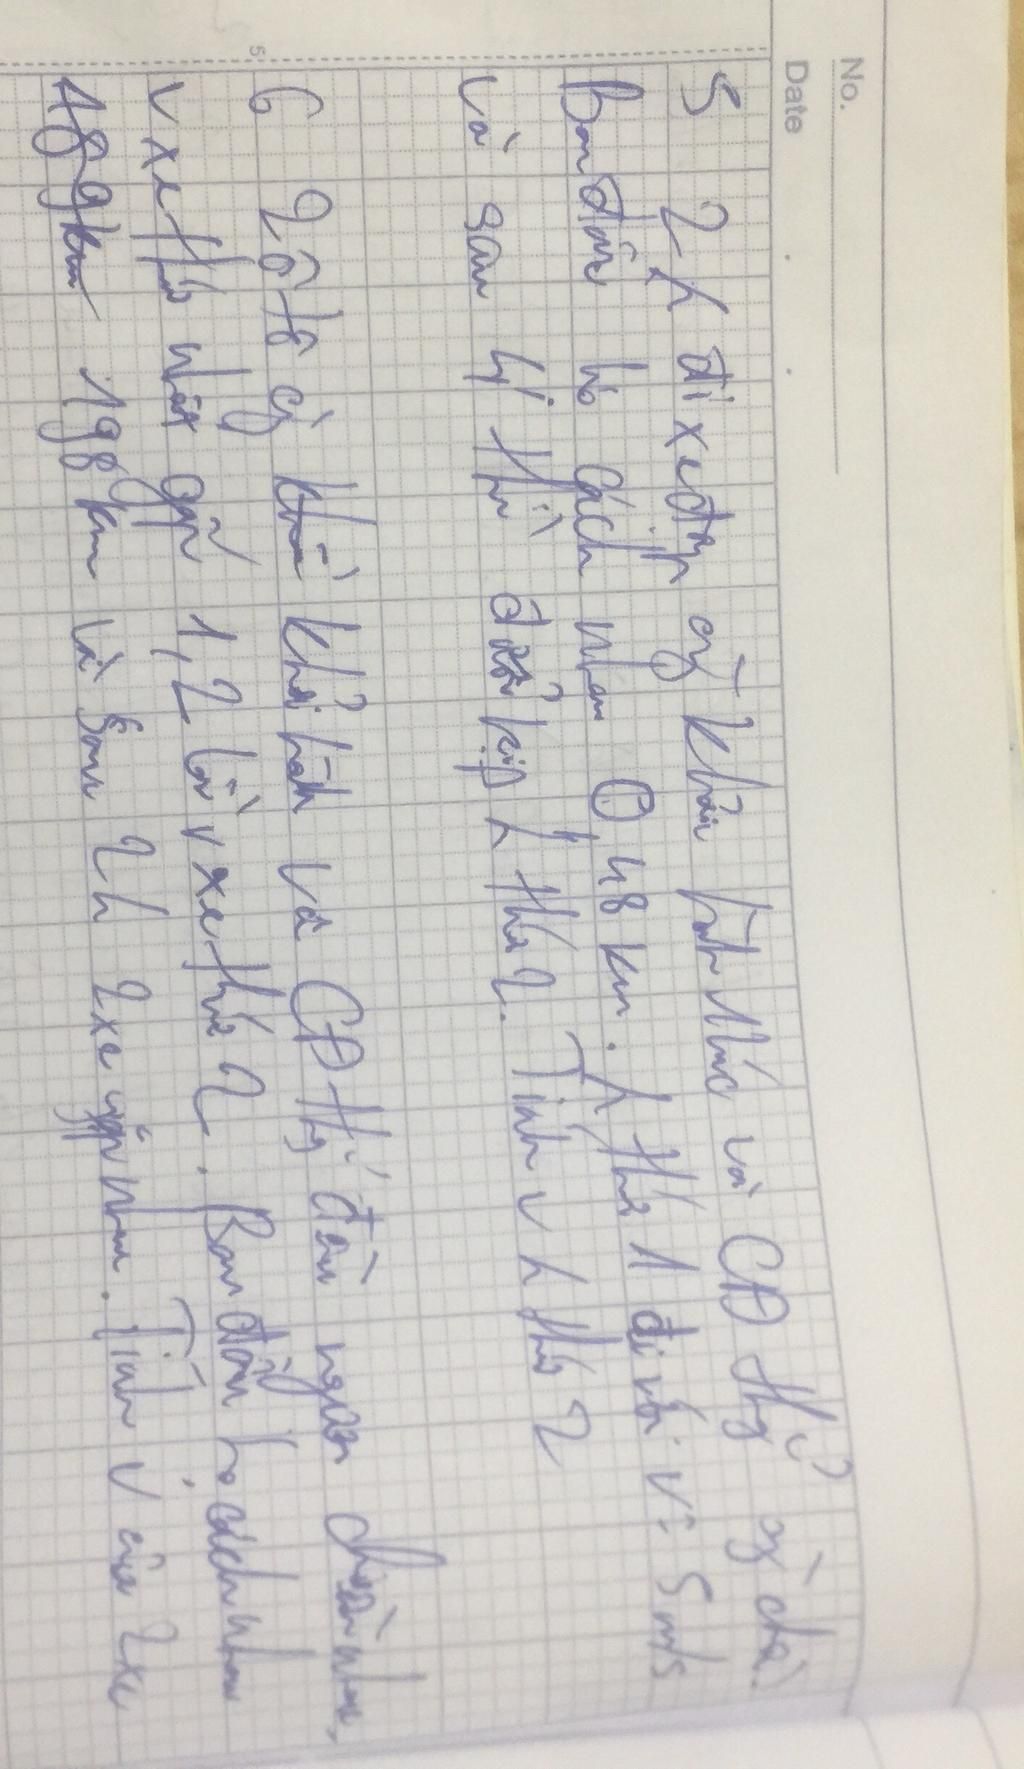 No.
Date
5 2 h đi xe đạp cg khởi hành 1 lúc và CĐ thg cg chiều
Ban đầu họ cách nhau 0,48 km. h thứ 1 đi với v: 5 m/s
và sau 4' thì đuổi kịp h thứ 2. Tính v h thứ 2
5
6 2 ô tô cg khởi hành và CĐ thg đều ngược chiều nhau,
v xe thứ nhất gấp 1,2 lần v xe thứ 2. Ban đầu họ cách nhau
198 km và sau 2h 2 xe gặp nhau. Tính v của 2 xe